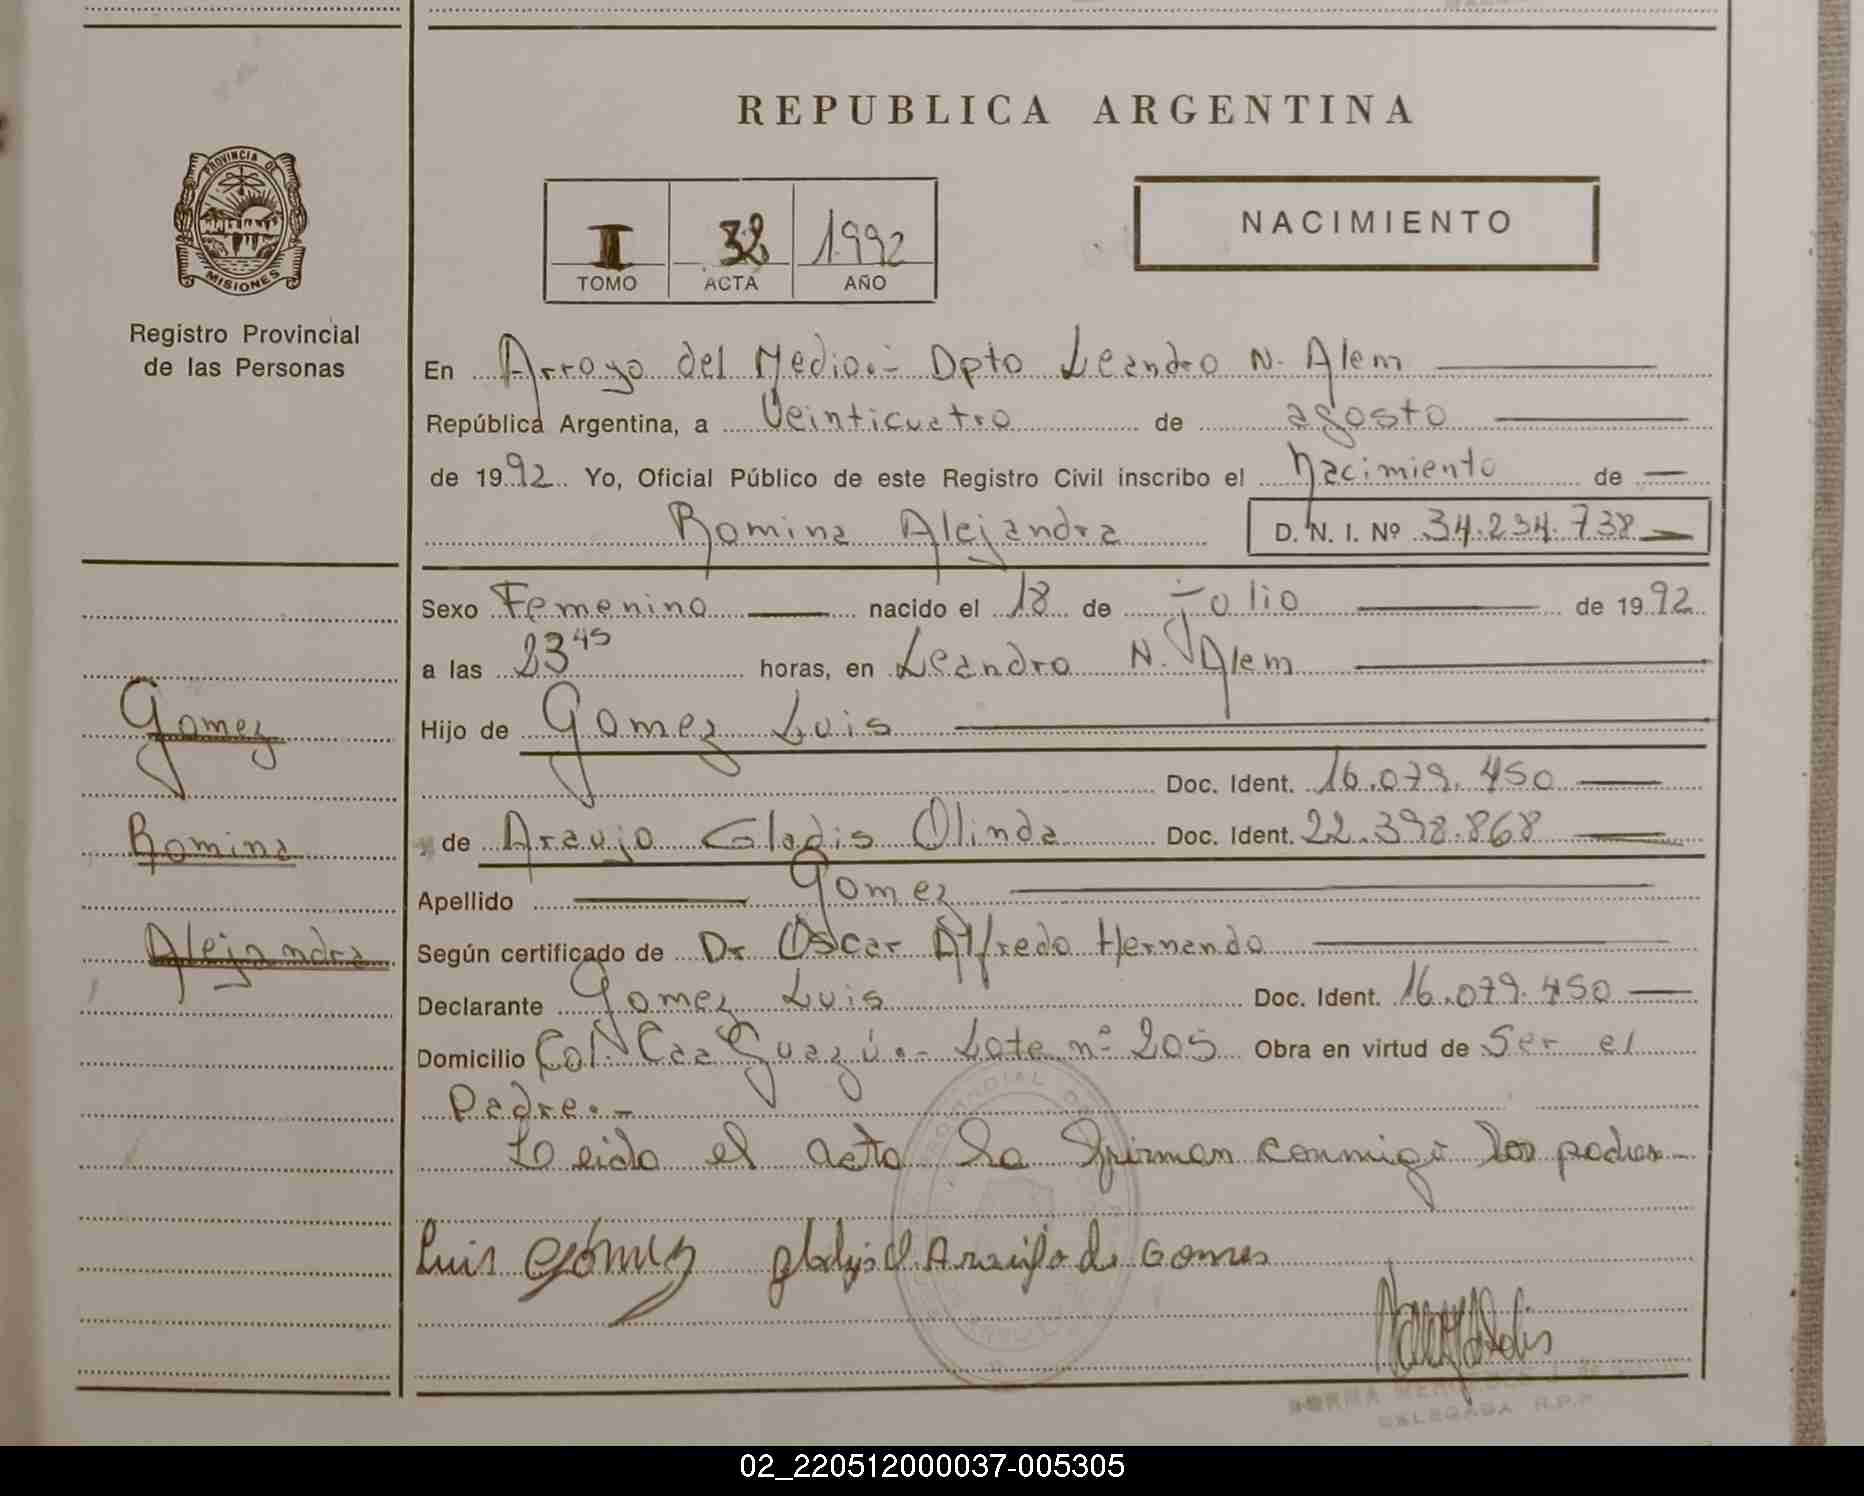 REPUBLICA ARGENTINA
PROVINCIA DE
MISIONES
Registro Provincial
de las Personas
I 32 1992
TOMO ACTA AÑO
NACIMIENTO
En Arroyo del Medio.- Dpto Leandro N. Alem
República Argentina, a Veinticuatro de agosto
de 1992. Yo, Oficial Público de este Registro Civil inscribo el Nacimiento de
Romina Alejandra D. N. I. Nº 34.234.738
Sexo Femenino nacido el 18 de Julio de 1992
a las 23 45 horas, en Leandro N. Alem
Hijo de Gomez Luis
Doc. Ident. 16.079.450
de Araujo Gladis Olinda Doc. Ident. 22.398.868
Apellido Gomez
Según certificado de Dr Oscar Alfredo Hernando
Declarante Gomez Luis Doc. Ident. 16.079.450
Domicilio Col. Caa Guazú.- Lote nº 205 Obra en virtud de Ser el
Padre.-
Leida el acta la firman conmigo los padres
Luis Gómez Gladys O. Araujo de Gomes
Gomez
Romina
Alejandra
DELEGADA R.P.P.
02_220512000037-005305